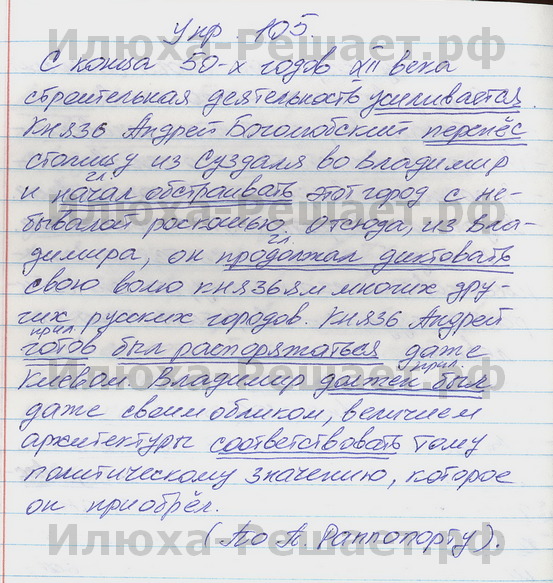 Упр 105.
С конца 50-х годов XII века
строительная деятельность усиливается.
Князь Андрей Боголюбский перенёс
столицу из Суздаля во Владимир
гл.
и начал обстраивать этот город с не-
бывалой роскошью. Отсюда, из Вла-
гл.
димира, он продолжал диктовать
свою волю князьям многих дру-
гих русских городов. Князь Андрей
прил.
готов был распоряжаться даже
прил.
Киевом. Владимир должен был
даже своим обликом, величием
архитектуры соответствовать тому
политическому значению, которое
он приобрёл.
(По П. Раппопорту).
Илюха-Решает.рф
Илюха-Решает.рф
Илюха-Решает.рф
Илюха-Решает.рф
Илюха-Решает.рф